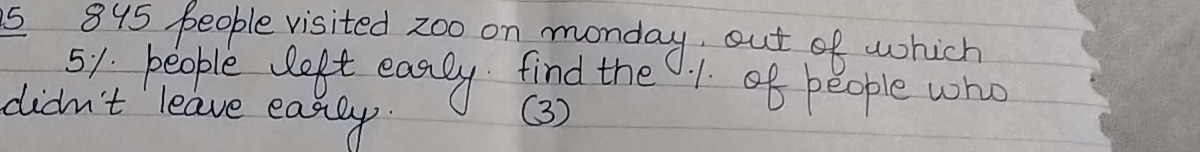 15 845 people visited zoo on monday, out of which
5%. people left early. find the %. of people who
didn't leave early. (3)